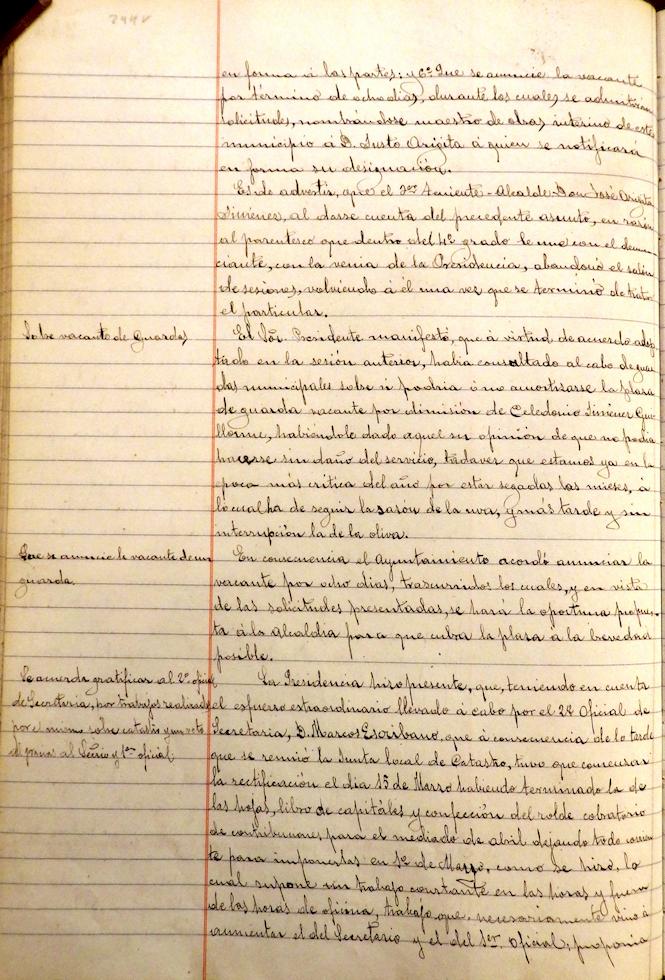 244v
en forma á las partes; y 6º Que se anuncie la vacante
por término de ocho dias, durante los cuales se admitirán
solicitudes, nombrándose maestro de obras interino de este
municipio á D. Justo Arigita á quien se notificará
en forma su designación.
Es de advertir, que el 3er Teniente-Alcalde Don José Arigita
Jimenez, al darse cuenta del precedente asunto, en razón
al parentesco que dentro del 4º grado le une con el denun
ciante, con la venia de la Presidencia, abandonó el salón
de sesiones, volviendo á él una vez que se terminó de tratar
el particular.
Sobre vacante de Guardas
El Sôr. Presidente manifestó, que á virtud de acuerdo adop
tado en la sesión anterior, había consultado al cabo de guar
das municipales sobre si podria ó no amortizarse la plaza
de guarda vacante por dimisión de Celedonio Jimenez Gui
llorme, habiéndole dado aquel su opinión de que no podia
hacerse sin daño del servicio, toda vez que estamos ya en la
epoca más crítica del año por estar segadas las mieses, á
lo cual ha de seguir la sazón de la uva, y más tarde y sin
interrupción la de la oliva.
Que se anuncie la vacante de un
guarda.
En consecuencia el Ayuntamiento acordó anunciar la
vacante por ocho dias, trascurridos los cuales, y en vista
de las solicitudes presentadas, se hará la oportuna propues
ta á la Alcaldia para que cubra la plaza á la brevedad
posible.
Se acuerda gratificar al 2º oficial
de Secretaria, por trabajos realizados
por el mismo sobre catastro y un voto
de gracias al Sècrio y 1er oficial
La Presidencia hizo presente, que, teniendo en cuenta
el esfuerzo extraordinario llevado á cabo por el 2º Oficial de
Secretaria, D. Marcos Escribano, que á consecuencia de lo tarde
que se reunió la Junta local de Catastro, tuvo que comenzar
la rectificación el dia 15 de Marzo habiendo terminado la de
las hojas, libro de capitales y confección del rolde cobratorio
de contribuciones para el mediado de abril dejando todo corrien
te para imponerlas en 1º de Mayo, como se hizo, lo
cual supone un trabajo constante en las horas y fuera
de las horas de oficina, trabajo que, necesariamente vino á
aumentar el del Secretario y el del 1er. Oficial; proponia